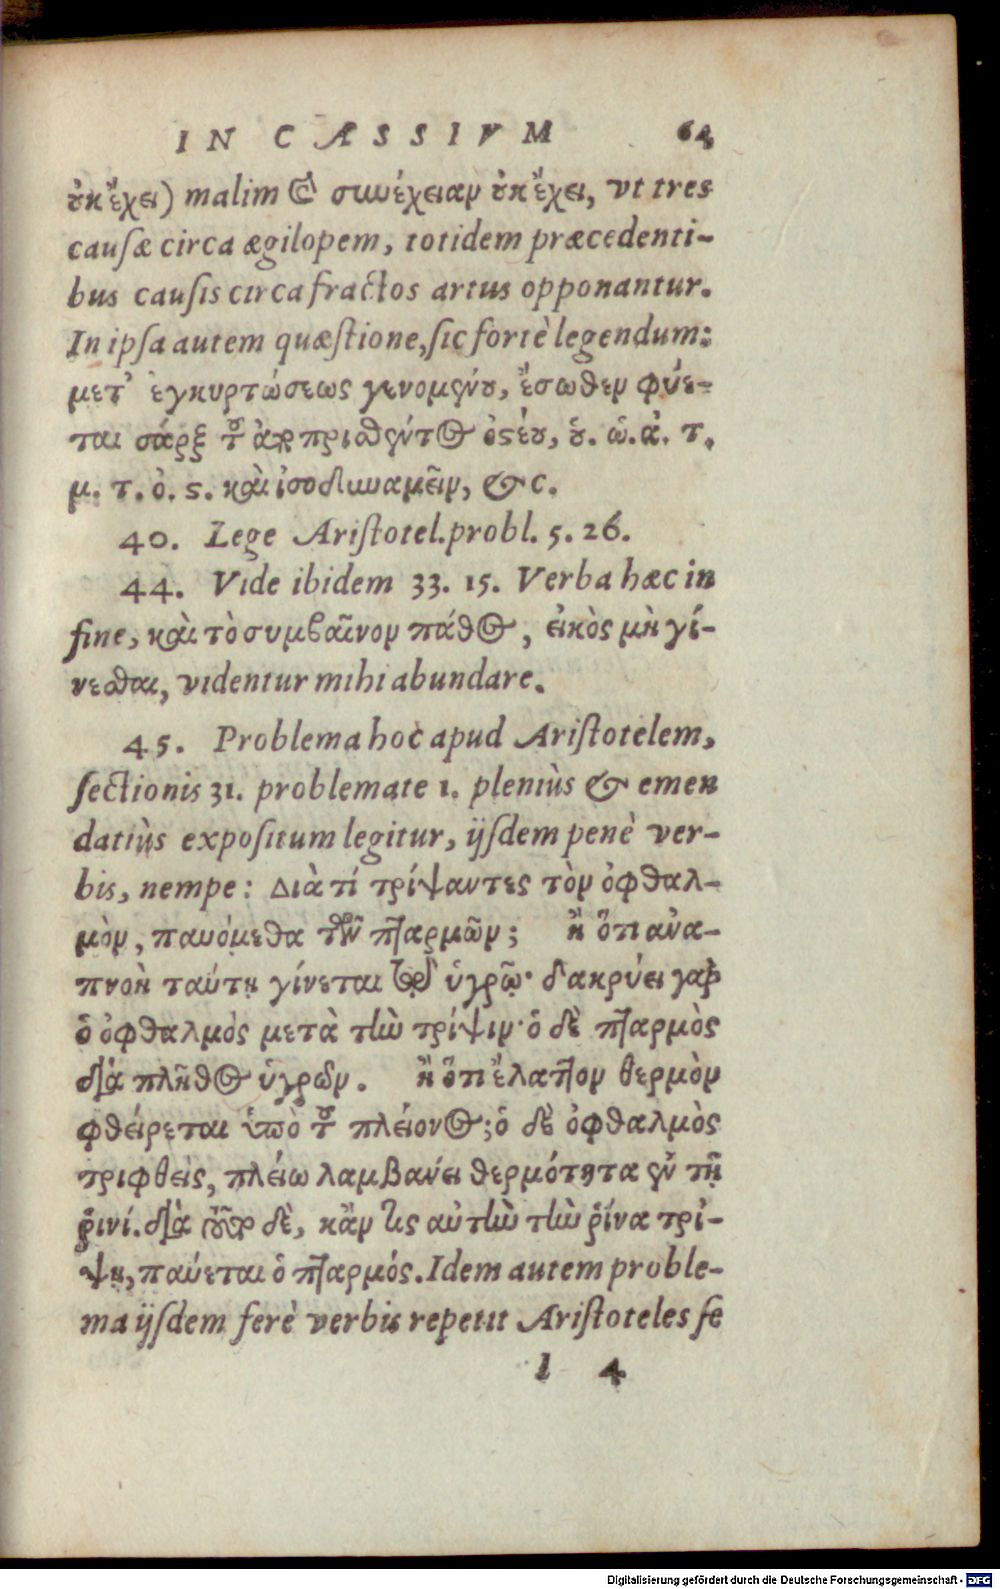 IN CÆSSIVM 64
οὐκ ἔχει) malim καὶ συνέχειαν οὐκ ἔχει, vt tres
causæ circa ægilopem, totidem præcedenti-
bus causis circa fractos artus opponantur.
In ipsa autem quæstione, sic fortè legendum:
μετ' ἐγκυρτώσεως γενομένου, ἔσωθεν φύε-
ται σάρξ τοῦ ἀποπριοθέντος ὀστέου, ὁ. ὡ. ἀ. τ.
μ. τ. ὀ. ς. καὶ ἰσοδυναμεῖν, &c.
40. Lege Aristotel. probl. 5. 26.
44. Vide ibidem 33. 15. Verba hæc in
fine, καὶ τὸ συμβαῖνον πάθος, εἰκὸς μὴ γί-
νεσθαι, videntur mihi abundare.
45. Problema hoc apud Aristotelem,
sectionis 31. problemate 1. pleniùs & emen
datiùs expositum legitur, ijsdem penè ver-
bis, nempe: Διὰ τί τρίψαντες τὸν ὀφθαλ-
μὸν, παυόμεθα τῶν πταρμῶν; ἢ ὅτι ἀνα-
πνοὴ ταύτῃ γίνεται τῷ ὑγρῷ· δακρύει γὰρ
ὁ ὀφθαλμὸς μετὰ τὴν τρίψιν· ὁ δὲ πταρμὸς
διὰ πλῆθος ὑγρῶν. ἢ ὅτι ἔλαττον θερμὸν
φθείρεται ὑπὸ τοῦ πλείονος; ὁ δὲ ὀφθαλμὸς
τριφθεὶς, πλείω λαμβανει θερμότητα ἐν τῇ
ῥινί. διὰ τοῦτο δὲ, κἄν τις αὐτὴν τὴν ῥίνα τρί-
ψῃ, παύεται ὁ πταρμός. Idem autem proble-
ma ijsdem ferè verbis repetit Aristoteles se
I 4
Digitalisierung gefördert durch die Deutsche Forschungsgemeinschaft - DFG